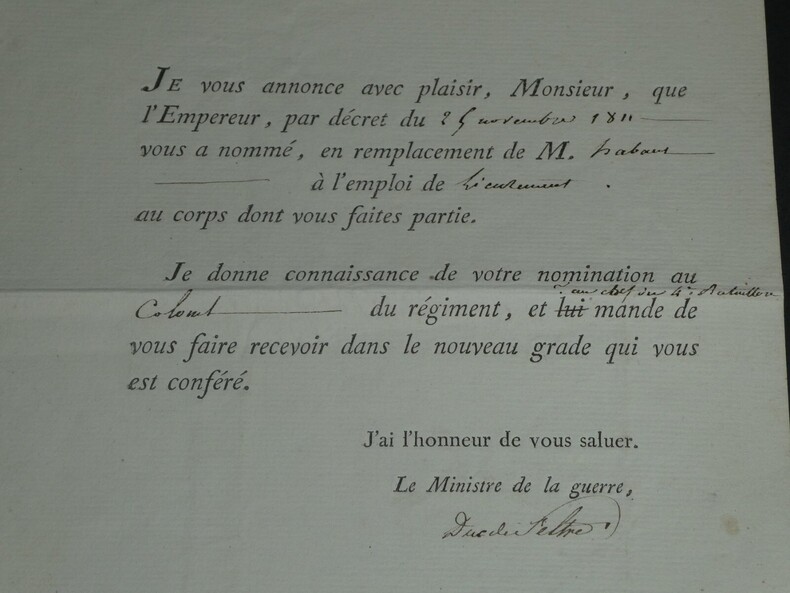 JE vous annonce avec plaisir, Monsieur, que
l'Empereur, par décret du 25 novembre 1811
vous a nommé, en remplacement de M.
à l'emploi de Lieutenant.
au corps dont vous faites partie.
Je donne connaissance de votre nomination au
au chef du 4e Bataillon
Colonel du régiment, et lui mande de
vous faire recevoir dans le nouveau grade qui vous
est conféré.
J'ai l'honneur de vous saluer.
Le Ministre de la guerre,
Duc de Feltre